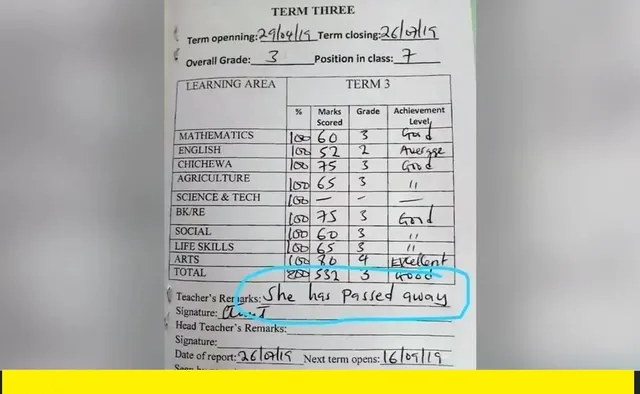 TERM THREE
Term openning: 29/04/19 Term closing: 26/07/19
Overall Grade: 3 Position in class: 7
LEARNING AREA TERM 3
% Marks Scored Grade Achievement Level
MATHEMATICS 100 60 3 Good
ENGLISH 100 52 2 Average
CHICHEWA 100 75 3 Good
AGRICULTURE 100 65 3 "
SCIENCE & TECH 100 — — —
BK/RE 100 75 3 Good
SOCIAL 100 60 3 "
LIFE SKILLS 100 65 3 "
ARTS 100 80 4 Excellent
TOTAL 800 532 3 Good
Teacher's Remarks: She has passed away
Signature:
Head Teacher's Remarks:
Signature:
Date of report: 26/07/19 Next term opens: 16/09/19